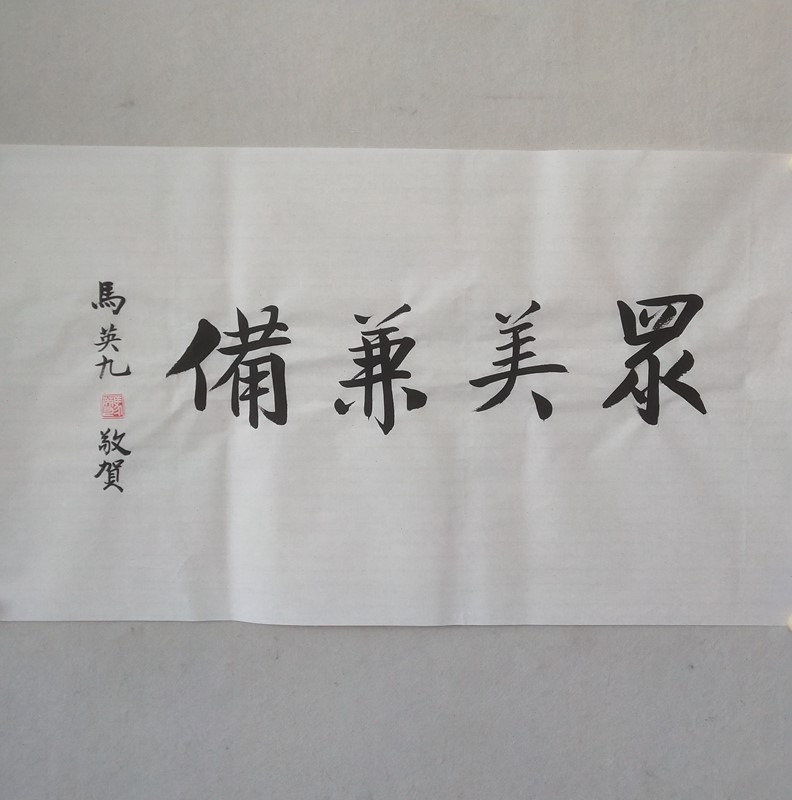 眾美兼備
馬英九 敬賀